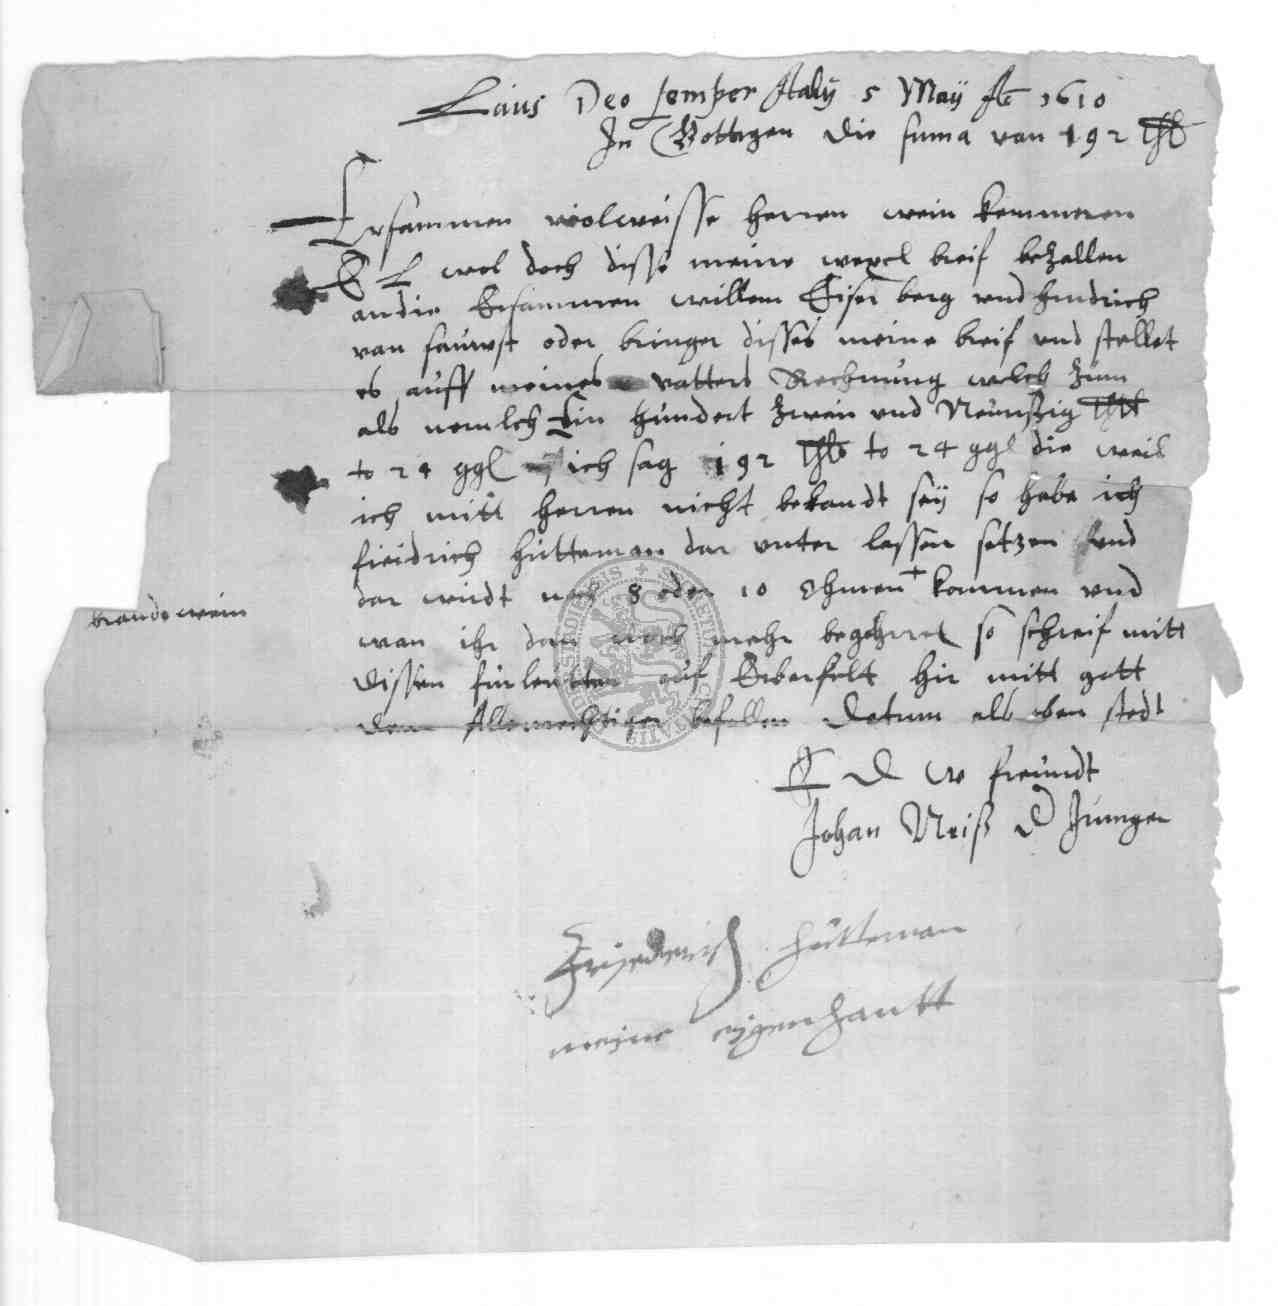 Laus Deo semper Adij 5 Maÿ Ao 1610
In Gottigen die suma van 192 thl
Ersammen wolweisse herren wein kemmeren
E L wol doch disse meine wexel breif bezallen
an die Ersammen willem Eiser berg und Hindrich
van oder bringer disses meine breif und stellet
es auff meines vatters Rechnung welch zum
als nemlch Ein hundert zwein und Neunßig thll
to 24 ggl ich sag 192 thlr to 24 ggl die weil
ich mitt herren nicht bekandt seÿ so habe ich
freidrich hütteman dar unter lassen setzen und
dar wirdt noch 8 oder 10 Ohmen + kommen und
brandewein
wan ihr dan noch mehr begehrret so schreif mitt
dissen auf Elberfelt hir mitt gott
dem Allemechtigen befollen Datum als oben stedt
E D W freündt
Johan Neiß D Junger
Friederich hütteman
meine eÿgen hantt